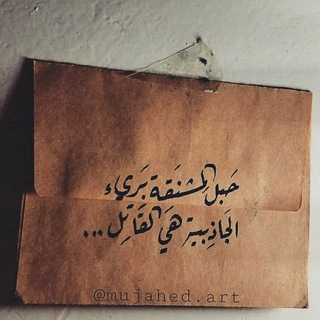 حَبل المشنَقة بَريء
الجَاذِبية هيَ القَاتِل...
@mujahed.art